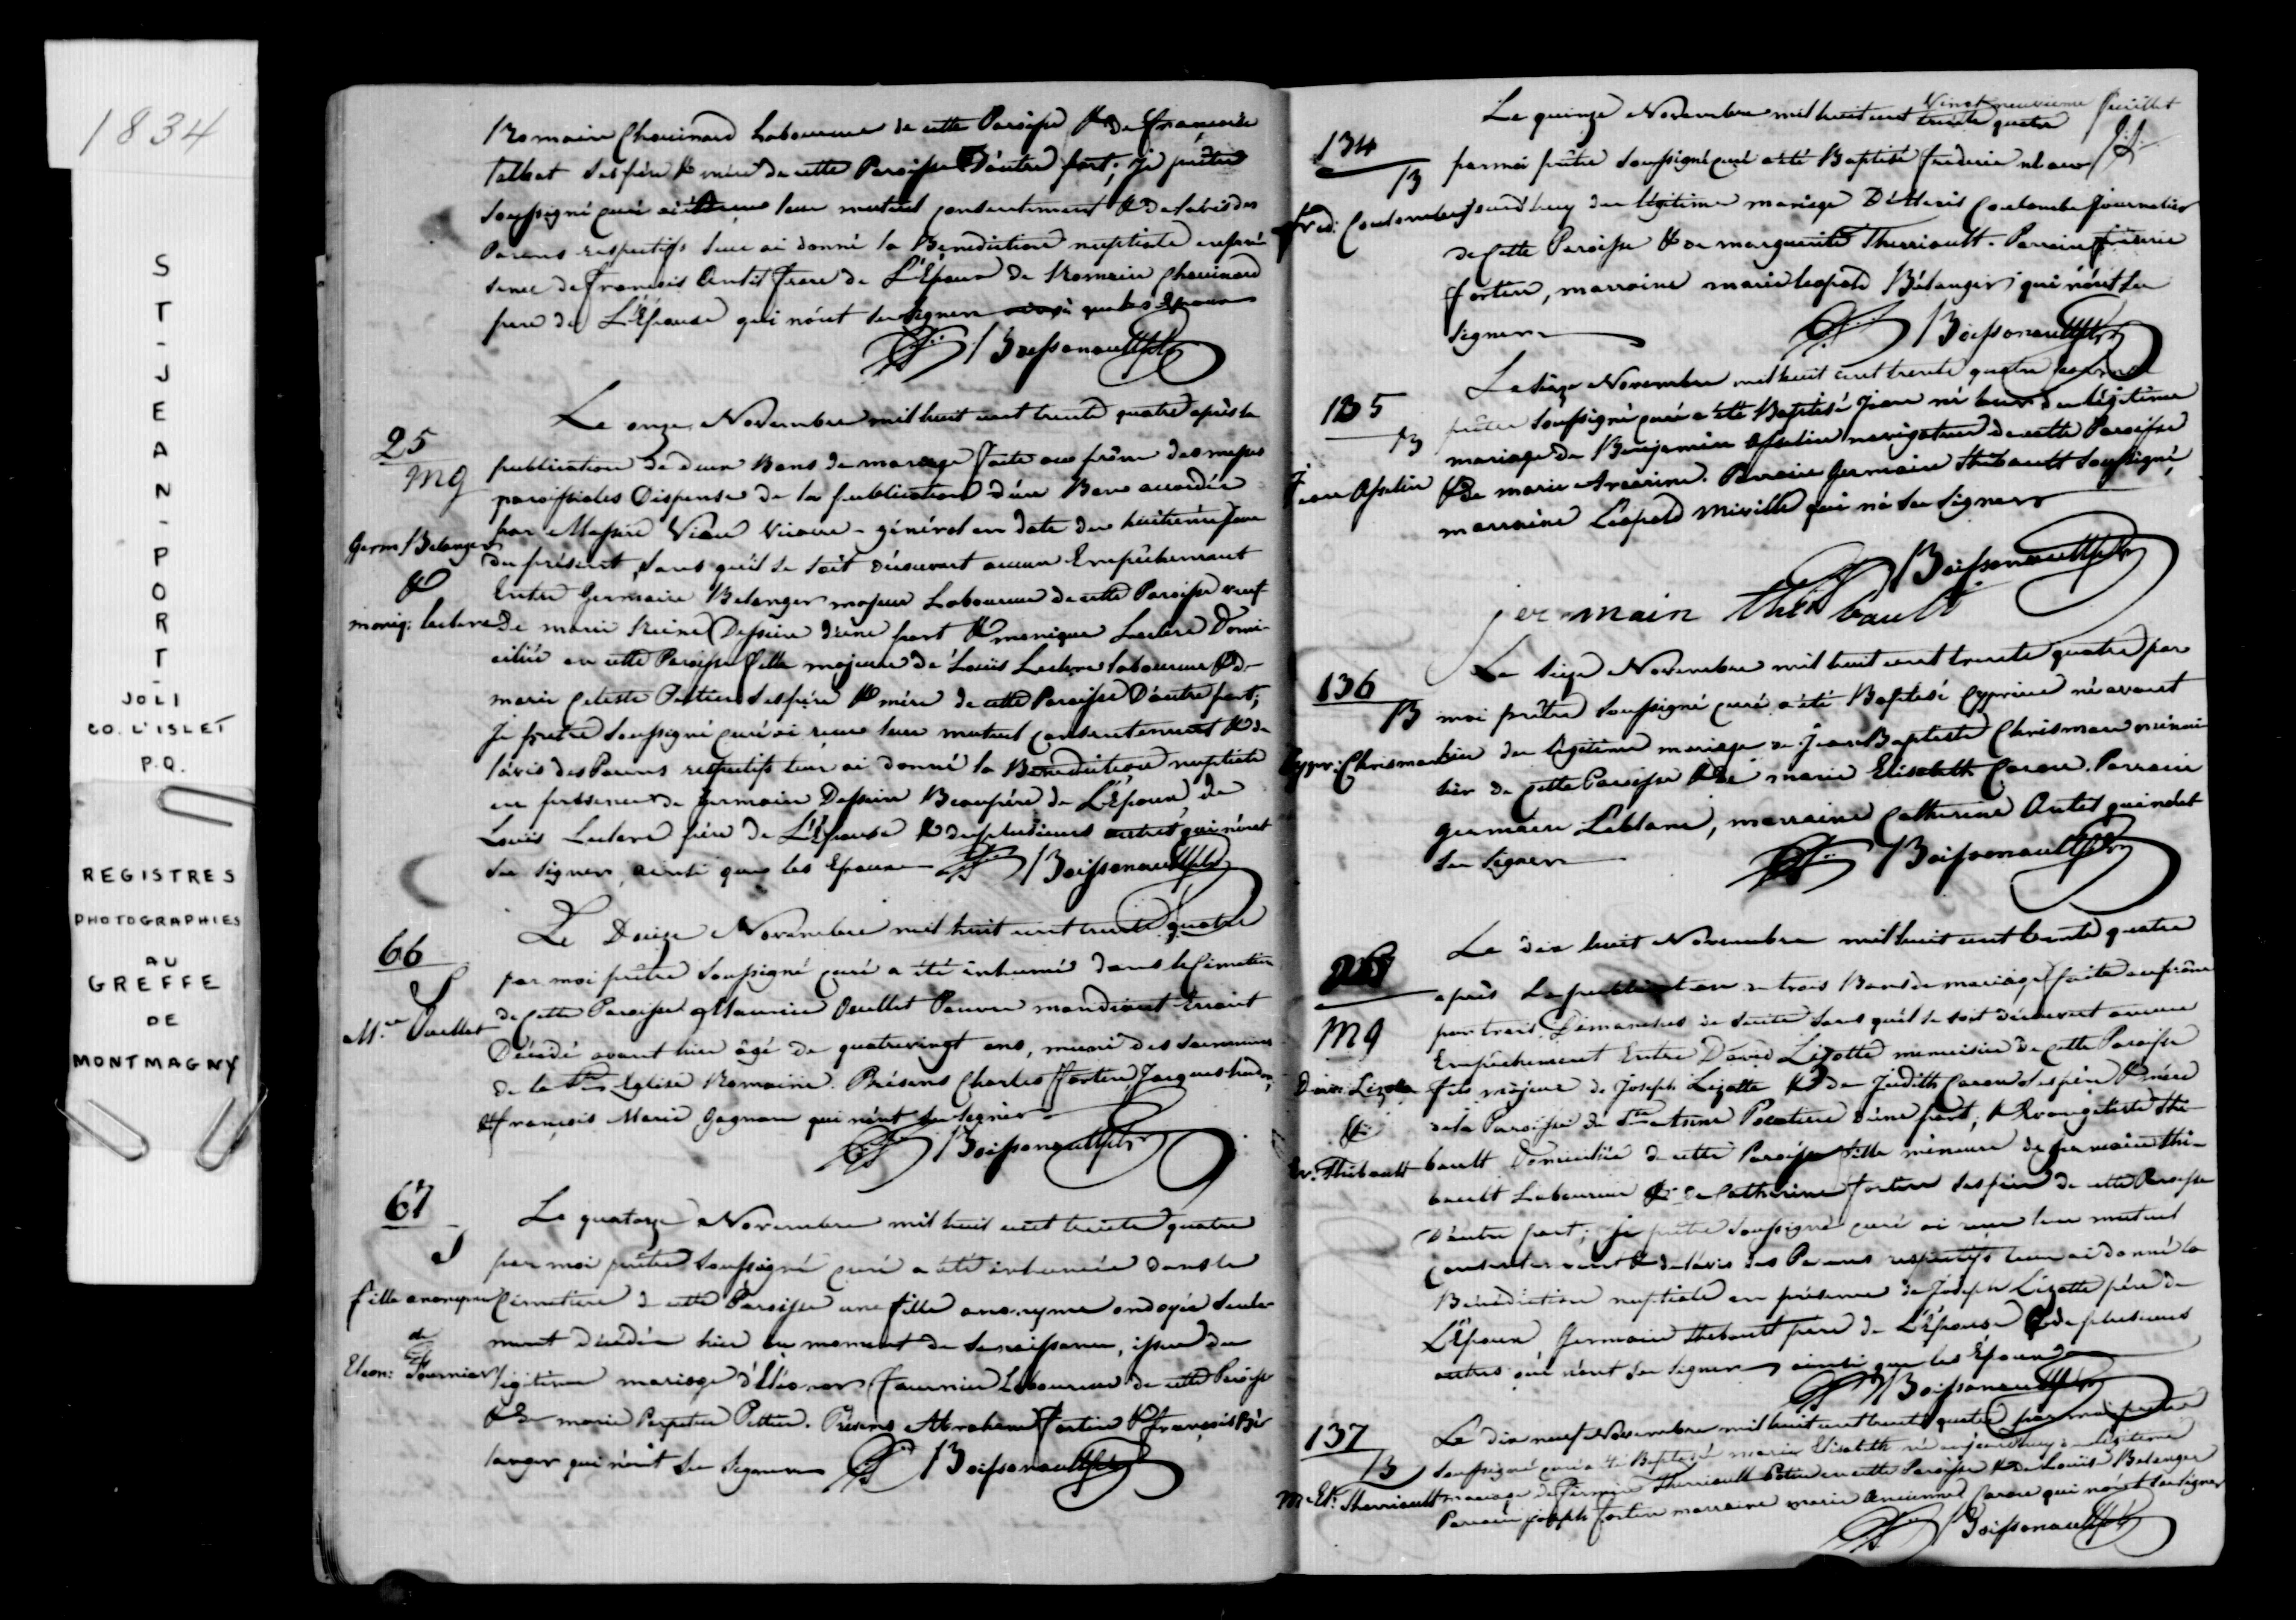 1834
ST-JEAN-PORT-
JOLI
CO. L'ISLET
P.Q.
REGISTRES
PHOTOGRAPHIES
AU
GREFFE
DE
MONTMAGNY
Romain Chouinard Laboureur de cette Paroisse & de Françoise
Talbot ses père & mère de cette Paroisse D'autre part; Je prêtre
soussigné curé ai reçu leur mutuel consentement & de l'avis des
Parens respectifs leur ai donné la Bénédiction nuptiale en pré
sence de François frere de L'Epoux de Romain Chouinard
pere de L'Epouse qui n'ont su signer ainsi que les Epoux
Boissonnault ptr
25
Mg
Germ. Belanger
&
moniq: leclerc
Le onze Novembre mil huit cent trente quatre après la
publication de deux Bans de mariage faite au prône des messes
paroissiales Dispense de la publication d'un Ban accordée
par Messire Viau Vicaire-général en date du huitième jour
du présent, sans qu'il se soit découvert aucun Empêchement
Entre Germain Belanger majeur Laboureur de cette Paroisse veuf
De marie Reine Dessein d'une part & monique Leclerc Domi-
ciliée en cette Paroisse fille majeure de Louis Leclerc laboureur & de
marie Celeste Peltier ses père & mère de cette Paroisse D'autre part;
Je prêtre soussigné curé ai reçu leur mutuel consentement & de
l'avis des Parens respectifs leur ai donné la Bénédiction nuptiale
en présence de Germain Dessein Beaupère de L'Epoux, de
Louis Leclerc père de L'Epouse & de plusieurs autres qui n'ont
su signer, ainsi que les Epoux
Boissonnault ptr
66
S
Ouellet
Le Douze Novembre mil huit cent trente quatre
par moi prêtre soussigné curé a été inhumé dans le Cimetière
de cette Paroisse Maurice Ouellet Pauvre mandiant Errant
Décédé avant hier âgé de quatrevingt ans, muni des Sacremens
de la Ste Eglise Romaine. Présens Charles Fortin, Jacques
& François Marie Gagnon qui n'ont su signer
Boissonnault ptr
67
S
fille anonyme
de
Eleon: Fournier
Le quatorze Novembre mil huit cent trente quatre
par moi prêtre soussigné curé a été inhumée dans le
Cimetière de cette Paroisse une fille anonyme ondoyée seule-
ment décédée hier au moment de sa naissance, issue du
légitime mariage d'Eléonor Fournier Laboureur de cette Paroisse
& de marie Perpetue Peltier. Présens Abraham Fortin & François Bé-
langer qui n'ont su signer
Boissonnault ptr
Vingt neuvieme feuillet
134
B
Fred: Coulombe
Le quinze Novembre mil huit cent trente quatre
par moi prêtre soussigné curé a été Baptisé Frederic né
aujourd'huy du légitime mariage D'Alexis Coulombe Journalier
de Cette Paroisse & de marguerite Therriault. Parrain Frederic
Fortin, marraine marie leopold Bélanger qui n'ont su
signer
Boissonnault ptr
135
B
Jean Asselin
Le seize Novembre mil huit cent trente quatre par moi
prêtre soussigné curé a été Baptisé Jean né hier du légitime
mariage de Benjamin Asselin navigateur de cette Paroisse
& de marie. Parrain Germain Thibault soussigné,
marraine Leopold Miville qui n'a su signer
Boissonnault ptr
jermain thibault
136
B
Cypr: Chrisman
Le seize Novembre mil huit cent trente quatre par
moi prêtre soussigné curé a été Baptisé Cyprien né avant
hier du légitime mariage de Jean Baptiste Chrisman menui-
sier de cette Paroisse & de marie Elisabeth Caron. Parrain
Germain Leblanc, marraine Catherine qui n'ont
su signer
Boissonnault ptr
26
Mg
Dav: Lizotte
&
Ev: Thibault
Le dix huit Novembre mil huit cent trente quatre
après La publication de trois Bans de mariage faite au prône
par trois Dimanches de suite sans qu'il se soit découvert aucun
Empêchement Entre David Lizotte menuisier de cette Paroisse
fils majeur de Joseph Lizotte & de Judith Caron ses père & mère
de la Paroisse de Ste Anne Pocatiere d'une part, & Evangeliste Thi-
bault Domiciliée de cette Paroisse fille mineure de Germain Thi-
bault Laboureur & de Catherine Fortin ses père de cette Paroisse
D'autre part; je prêtre soussigné curé ai reçu leur mutuel
consentement & de l'avis des Parens respectifs leur ai donné la
Bénédiction nuptiale en présence de Joseph Lizotte père de
L'Epoux, Germain Thibault pere de L'Epouse & de plusieurs
autres qui n'ont su signer ainsi que les Epoux
Boissonnault ptr
137
B
M. El: Therriault
Le dix neuf Novembre mil huit cent trente quatre par moi prêtre
soussigné curé a été Baptisée marie Elisabeth née aujourd'huy du légitime
mariage de Firmin Therriault Potier en cette Paroisse & de Louise Belanger
Parrain joseph Fortin marraine marie Caron qui n'ont su signer
Boissonnault ptr